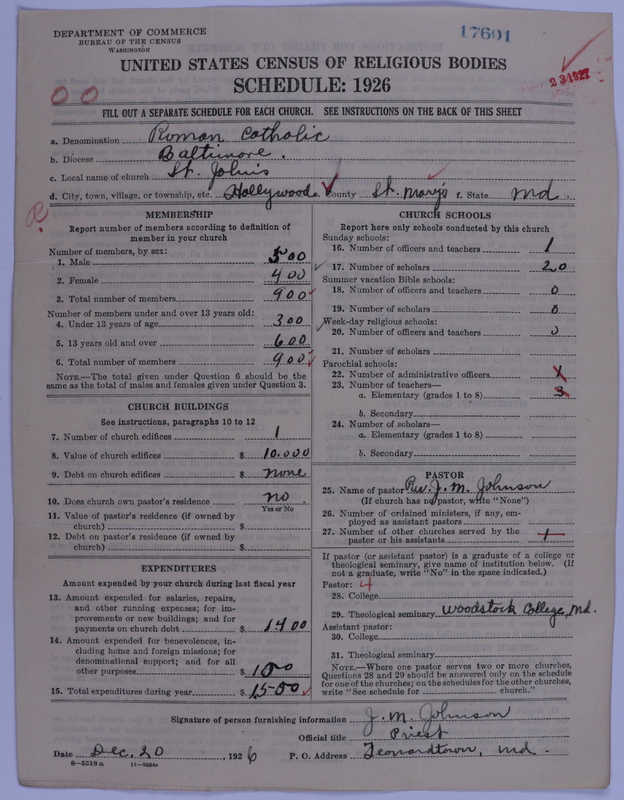 DEPARTMENT OF COMMERCE
BUREAU OF THE CENSUS
WASHINGTON
17601
UNITED STATES CENSUS OF RELIGIOUS BODIES
SCHEDULE: 1926
2 3 1927
00
FILL OUT A SEPARATE SCHEDULE FOR EACH CHURCH. SEE INSTRUCTIONS ON THE BACK OF THIS SHEET
a. Denomination Roman Catholic
b. Diocese Baltimore.
c. Local name of church St. John's
d. City, town, village, or township, etc. Hollywood e. County St. Mary's f. State Md.
R
MEMBERSHIP
Report number of members according to definition of
member in your church
Number of members, by sex:
1. Male 500
2. Female 400
3. Total number of members 900
Number of members under and over 13 years old:
4. Under 13 years of age 300
5. 13 years old and over 600
6. Total number of members 900
NOTE.—The total given under Question 6 should be the
same as the total of males and females given under Question 3.
CHURCH BUILDINGS
See instructions, paragraphs 10 to 12
7. Number of church edifices 1
8. Value of church edifices $ 10.000
9. Debt on church edifices $ none
10. Does church own pastor's residence no
Yes or No
11. Value of pastor's residence (if owned by
church) $
12. Debt on pastor's residence (if owned by
church) $
EXPENDITURES
Amount expended by your church during last fiscal year
13. Amount expended for salaries, repairs,
and other running expenses; for im-
provements or new buildings; and for
payments on church debt $ 1400
14. Amount expended for benevolences, in-
cluding home and foreign missions; for
denominational support; and for all
other purposes $ 150
15. Total expenditures during year $ 1550
CHURCH SCHOOLS
Report here only schools conducted by this church
Sunday schools:
16. Number of officers and teachers 1
17. Number of scholars 20
Summer vacation Bible schools:
18. Number of officers and teachers 0
19. Number of scholars 0
Week-day religious schools:
20. Number of officers and teachers 0
21. Number of scholars
Parochial schools:
22. Number of administrative officers 1
23. Number of teachers—
a. Elementary (grades 1 to 8) 3
b. Secondary
24. Number of scholars—
a. Elementary (grades 1 to 8)
b. Secondary
PASTOR
25. Name of pastor Rev. J. M. Johnson
(If church has no pastor, write "None")
26. Number of ordained ministers, if any, em-
ployed as assistant pastors
27. Number of other churches served by the
pastor or his assistants 1
If pastor (or assistant pastor) is a graduate of a college or
theological seminary, give name of institution below. (If
not a graduate, write "No" in the space indicated.)
Pastor: 4
28. College
29. Theological seminary Woodstock College, Md.
Assistant pastor:
30. College
31. Theological seminary
NOTE.—Where one pastor serves two or more churches,
Questions 28 and 29 should be answered only on the schedule
for one of the churches; on the schedules for the other churches,
write "See schedule for church."
Signature of person furnishing information J. M. Johnson
Official title Priest
Date Dec. 20, 1926 P. O. Address Leonardtown, Md.
8—5518a 11—9084